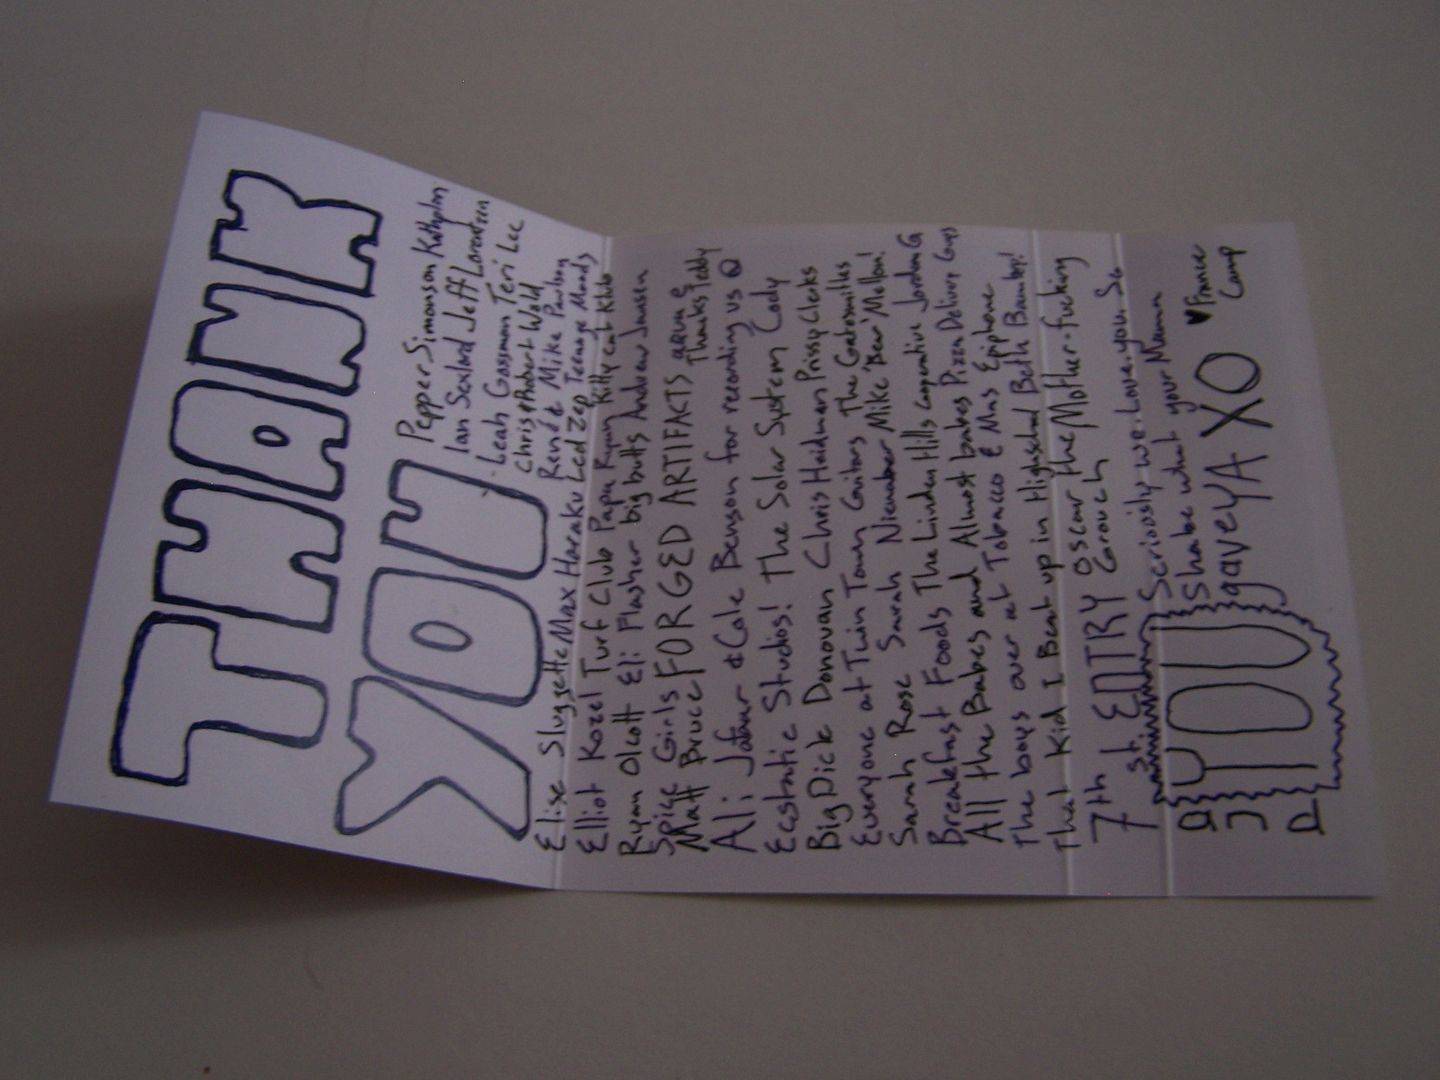 THANK
YOU
Pepper Simonson Kathplon
Ian Sexland Jeff Lorentzen
Leah Gassman Teri Lee
Chris & Robert Wold
René & Mike Paulson
Elise Sluggette Max Haraku Led Zep Teenage Moods
Elliot Kozel Turf Club Papa Ryan Kitty Cat Klub
Ryan Olcott Eli Flasher big butts Andrew Jansen
Spice Girls FORGED ARTIFACTS aqua &
Matt Bruce Thanks Teddy
Ali Jafaur & Cole Benson for recording us @
Ecstatic Studios! The Solar System Cody
Big Dick Donovan Chris Heidman Prissy Clerks
Everyone at Twin Town Guitars The Gatorsmiths
Sarah Rose Sarah Mike 'Bear' Mollon!
Breakfast Foods The Linden Hills Cooperative Jordan G
All the Babes and Almost babes Pizza Delivery Guys
The boys over at Tobacco & Mrs Epiphone
That Kid I Beat up in Highschool Beth Bambey!
7th st ENTRY Oscar the Mother-fucking
Grouch
Seriously we. Love. you. So
Shabe what your Mama
gave YA XO ♥ France
Camp